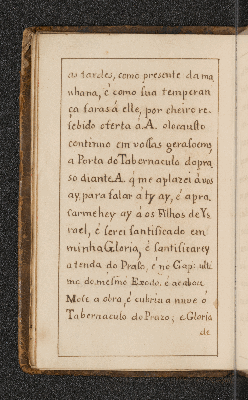 as tardes, como presente da ma
nhana, é como sua temperan
ça farasá elle, por cheiro re-
sebido oferta á.A. olocausto
continno em vossas gerasoems
a Porta do Tabernaculo do pra
so diante A. q̃ me aplazei á vos
ay, para falar á ty ay, é apra
sarmehey ay á os Filhos de Ys
rael, é serei santificado em
minha Gloria, é santificarey
a tenda do Praso, é no Cap: ulti
mo do mesmo Exodo. é acabou
Mose a obra, é cubriu a nuve ó
Tabernaculo do Prazo; e Gloria
de